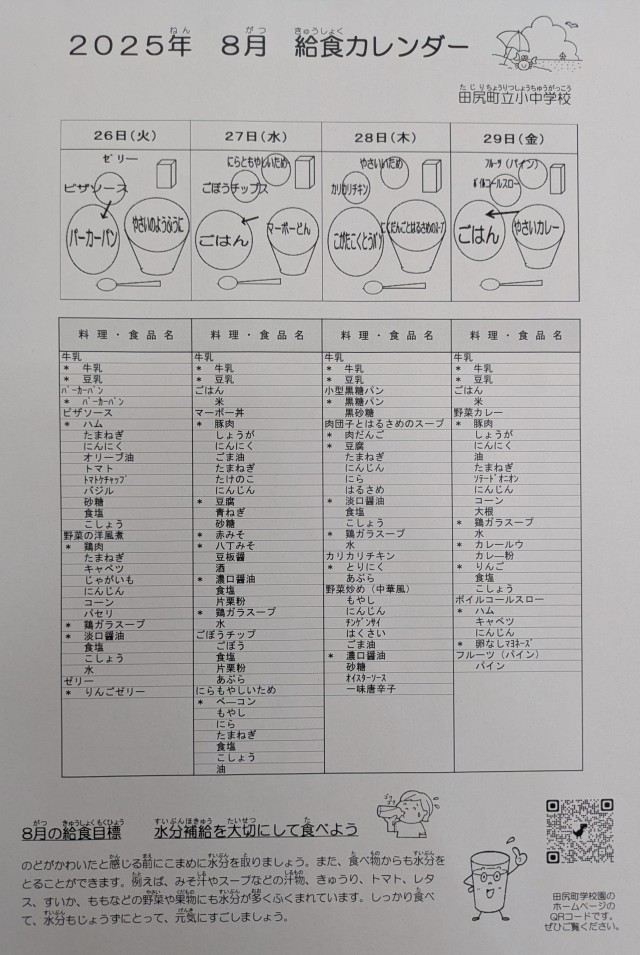 2025年 8月 給食カレンダー
田尻町立小中学校
26日(火) 27日(水) 28日(木) 29日(金)
ゼリー
ピザソース
パーカーパン
やさいのようふうに
にらともやしいため
ごぼうチップス
ごはん
マーボーどん
やさいいため
カリカリチキン
こがたこくとうパン
にくだんごとはるさめのスープ
フルーツ(パイン)
ボイルコールスロー
ごはん
やさいカレー
料理・食品名
牛乳
* 牛乳
* 豆乳
パーカーパン
* パーカーパン
ピザソース
* ハム
たまねぎ
にんにく
オリーブ油
トマト
トマトケチャップ
バジル
砂糖
食塩
こしょう
野菜の洋風煮
* 鶏肉
たまねぎ
キャベツ
じゃがいも
にんじん
コーン
パセリ
* 鶏ガラスープ
* 淡口醤油
食塩
こしょう
水
ゼリー
* りんごゼリー
料理・食品名
牛乳
* 牛乳
* 豆乳
ごはん
米
マーボー丼
* 豚肉
しょうが
にんにく
ごま油
たまねぎ
たけのこ
にんじん
* 豆腐
青ねぎ
砂糖
* 赤みそ
* 八丁みそ
豆板醤
酒
* 濃口醤油
食塩
片栗粉
* 鶏ガラスープ
水
ごぼうチップ
ごぼう
食塩
片栗粉
あぶら
にらもやしいため
* ベーコン
もやし
にら
たまねぎ
食塩
こしょう
油
料理・食品名
牛乳
* 牛乳
* 豆乳
小型黒糖パン
* 黒糖パン
黒砂糖
肉団子とはるさめのスープ
* 肉だんご
* 豆腐
たまねぎ
にんじん
にら
はるさめ
* 淡口醤油
食塩
こしょう
* 鶏ガラスープ
水
カリカリチキン
* とりにく
あぶら
野菜炒め(中華風)
もやし
にんじん
チンゲンサイ
はくさい
ごま油
* 濃口醤油
砂糖
オイスターソース
一味唐辛子
料理・食品名
牛乳
* 牛乳
* 豆乳
ごはん
米
野菜カレー
* 豚肉
しょうが
にんにく
油
たまねぎ
ソテードオニオン
にんじん
コーン
大根
* 鶏ガラスープ
水
* カレールウ
カレー粉
* りんご
食塩
こしょう
ボイルコールスロー
* ハム
キャベツ
にんじん
* 卵なしマヨネーズ
フルーツ(パイン)
パイン
8月の給食目標 水分補給を大切にして食べよう
のどがかわいたと感じる前にこまめに水分を取りましょう。また、食べ物からも水分を
とることができます。例えば、みそ汁やスープなどの汁物、きゅうり、トマト、レタ
ス、すいか、ももなどの野菜や果物にも水分が多くふくまれています。しっかり食べ
て、水分もじょうずにとって、元気にすごしましょう。
田尻町学校園の
ホームページの
QRコードです。
ぜひご覧ください。